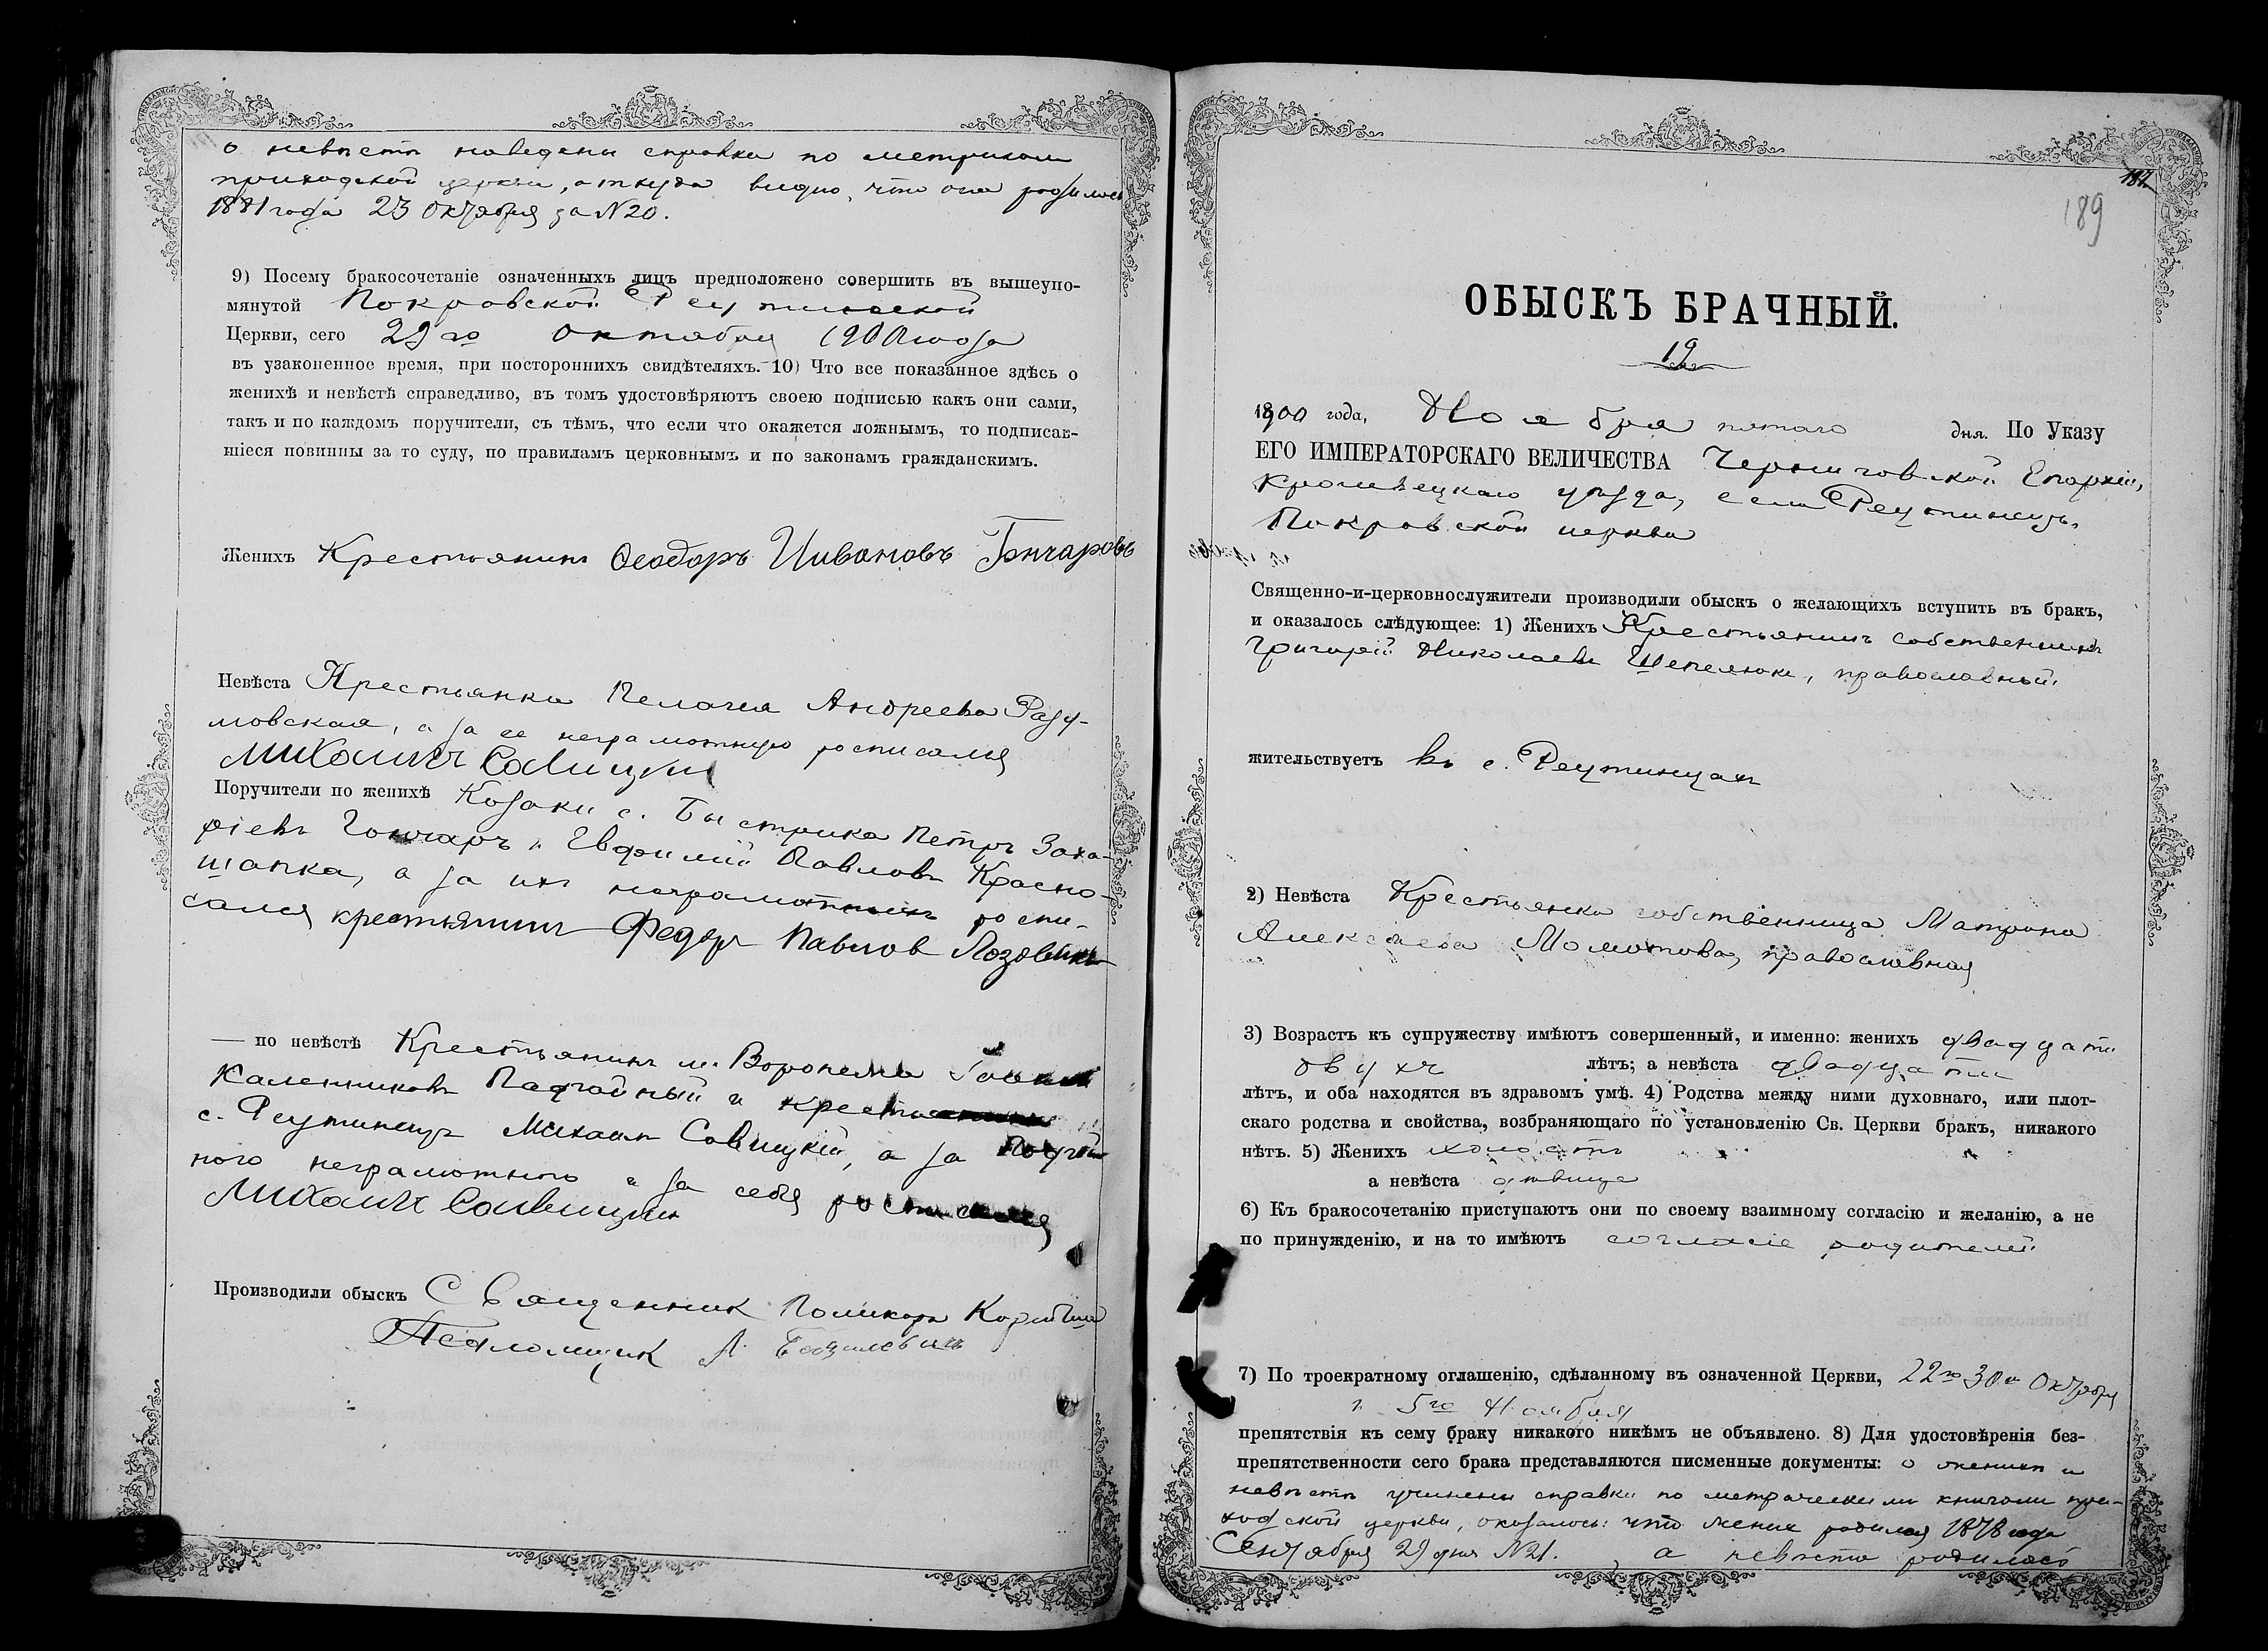 о невѣстѣ наведены справки по метрикамъ
приходской церкви, откуда видно, что она родилась
1881 года 23 Октября за №20.
9) Посему бракосочетаніе означенныхъ лицъ предположено совершить въ вышеупо-
мянутой Покровской Реутинской
Церкви, сего 29го октября 1900 года
въ узаконенное время, при постороннихъ свидѣтеляхъ. 10) Что все показанное здѣсь о
женихѣ и невѣстѣ справедливо, въ томъ удостовѣряютъ своею подписью какъ они сами,
такъ и по каждомъ поручители, съ тѣмъ, что если что окажется ложнымъ, то подписав-
шіеся повинны за то суду, по правиламъ церковнымъ и по законамъ гражданскимъ.
Женихъ Крестьянинъ Ѳеодоръ Ивановъ Гончаровъ
Невѣста Крестьянка Пелагея Андреева Разу-
мовская, а за ее неграмотную росписался
Михаилъ Савицкій
Поручители по женихѣ Козаки с. Быстрика Петръ Заха-
ріевъ Гончаръ и Евфимій Павловъ Красно-
шапка, а за ихъ неграмотныхъ роспи-
сался крестьянинъ Федоръ Павлов Лозовикъ
— по невѣстѣ Крестьянинъ м. Воронежа
Каленниковъ и
с. Реутинецъ Михаилъ Савицкій, а за
ного неграмотнаго и за себя росписался
Михаилъ Савицкій
Производили обыскъ Священник Поликарп
Псаломщик А.
187
189
ОБЫСКЪ БРАЧНЫЙ.
19
1900 года, Ноября пятаго дня. По Указу
ЕГО ИМПЕРАТОРСКАГО ВЕЛИЧЕСТВА Черниговской Епархіи,
Кролевецкаго уѣзда, села Реутинецъ,
Покровской церкви
Священно-и-церковнослужители производили обыскъ о желающихъ вступить въ бракъ,
и оказалось слѣдующее: 1) Женихъ Крестьянинъ собственникъ
Григорій Николаевъ Шепелюкъ, православный
жительствуетъ въ с. Реутинцахъ
2) Невѣста Крестьянка собственница Матрона
Алексѣева Момотова, православная
3) Возрастъ къ супружеству имѣютъ совершенный, и именно: женихъ двадцати
двухъ лѣтъ; а невѣста двадцати
лѣтъ, и оба находятся въ здравомъ умѣ. 4) Родства между ними духовнаго, или плот-
скаго родства и свойства, возбраняющаго по установленію Св. Церкви бракъ, никакого
нѣтъ. 5) Женихъ холостъ
а невѣста дѣвица
6) Къ бракосочетанію приступаютъ они по своему взаимному согласію и желанію, а не
по принужденію, и на то имѣютъ согласіе родителей
7) По троекратному оглашенію, сдѣланному въ означенной Церкви, 22го 30го Октября
и 5го Ноября
препятствія къ сему браку никакого никѣмъ не объявлено. 8) Для удостовѣренія без-
препятственности сего брака представляются писменные документы: о женихѣ и
невѣстѣ учинены справки по метрическимъ книгамъ при-
ходской церкви, оказалось: что женихъ родился 1878 года
Сентября 29 дня №21. , а невѣста родилась